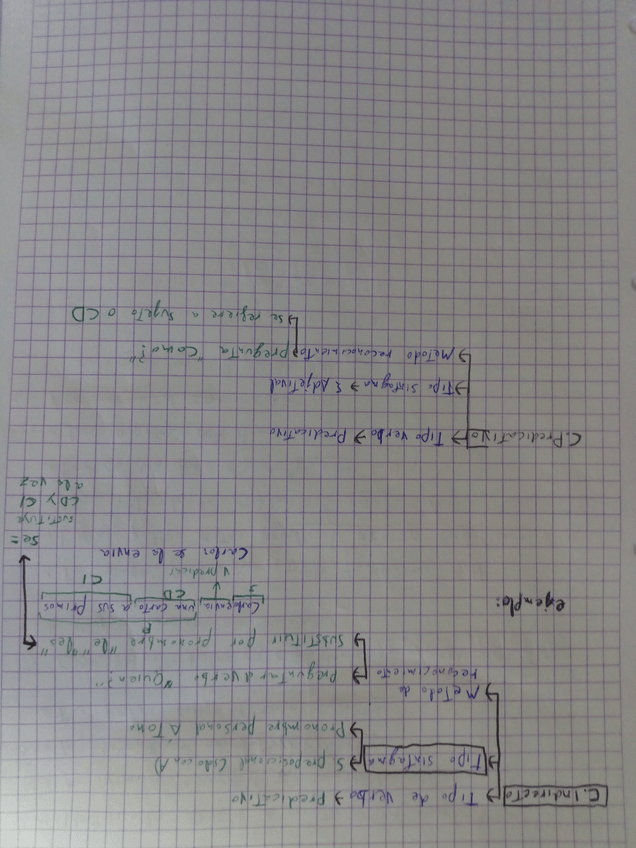 C. Indirecto → Tipo de verbo → predicativo
→ Tipo sintagma → S preposicional (solo con A)
→ Pronombre personal ATono
→ Metodo de reconocimiento → Preguntar al verbo "Quien?"
→ substituir por pronombre "le" "les"
ejemplo:
P
Carlos envia una carta a sus primos
CD
CI
V predica
Carlos se la envia
se = sustituye CD y CI a la vez
C. Predicativo → Tipo verbo → Predicativo
→ Tipo sintagma → S Adjetival
→ Metodo reconocimiento → pregunta "Como?"
→ se refiere a sujeto o CD